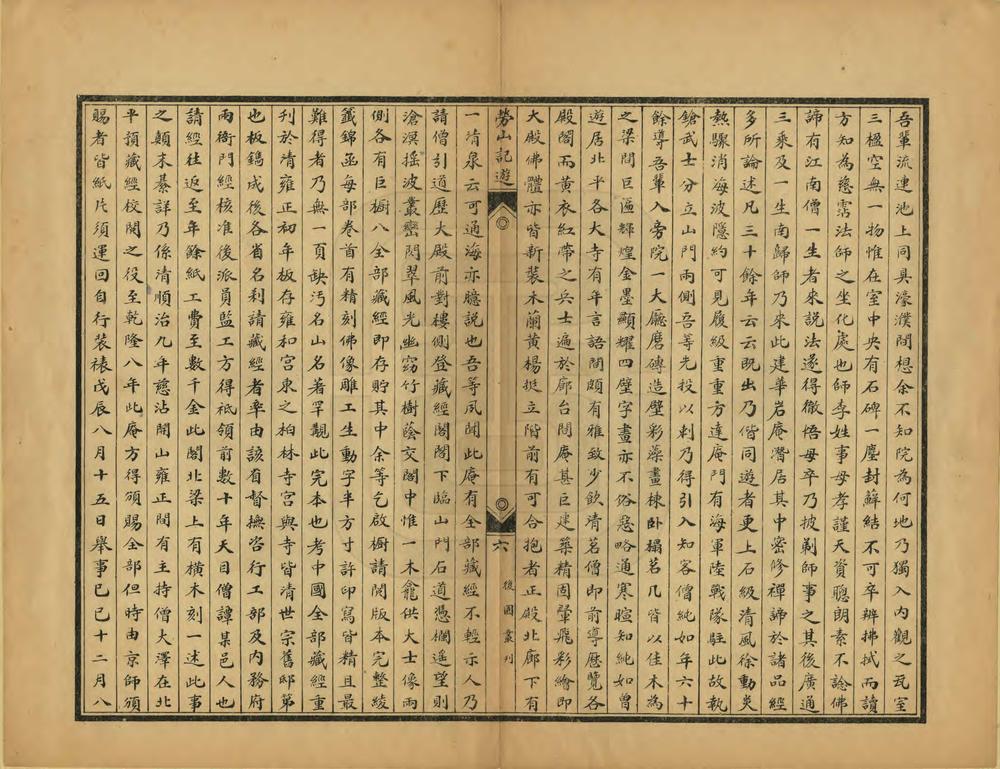 吾輩流連池上同具濠濮間想余不知院為何地乃獨入內觀之瓦室
三楹空無一物惟在室中央有石碑一塵封蘚結不可卒辨拂拭而讀
方知為慈霑法師之坐化處也師李姓事母孝謹天資聰朗素不諗佛
諦有江南僧一生者來說法遂得徹悟母卒乃披剃師事之其後廣通
三乘及一生南歸師乃來此建華岩庵潛居其中密修禪諦於諸品經
多所論述凡三十餘年云云既出乃偕同遊者更上石級清風徐動炎
熱驟消海波隱約可見履級重重方達庵門有海軍陸戰隊駐此故執
鎗武士分立山門兩側吾等先投以刺乃得引入知客僧純如年六十
餘導吾輩入旁院一大廳磨磚造壁彩藻畫棟卧榻茗几皆以佳木為
之梁間巨匾輝煌金墨顯耀四壁字畫亦不俗惡略通寒暄知純如曾
遊居北平各大寺有年言語間頗有雅致少飲清茗僧即前導歷覽各
殿閣而黃衣紅帶之兵士遍於廊台間庵甚巨建築精固翬飛彩繪即
大殿佛體亦皆新裝木蘭黃楊挺立階前有可合抱者正殿北廊下有
勞山記遊
六
後圃叢刊
一清泉云可通海亦臆說也吾等夙聞此庵有全部藏經不輕示人乃
請僧引道歷大殿前對樓側登藏經閣閣下臨山門石道憑欄遥望則
滄溟搖波叢巒閃翠風光幽窈竹樹蔭交閣中惟一木龕供大士像兩
側各有巨櫥八全部藏經即存貯其中余等乞啟櫥請閱版本完整綾
籤錦函每部卷首有精刻佛像雕工生動字半方寸許印寫皆精且最
難得者乃無一頁缺污名山名著罕覯此完本也考中國全部藏經重
刊於清雍正初年板存雍和宮東之柏林寺宮與寺皆清世宗舊邸第
也板鐫成後各省名剎請藏經者率由該省督撫咨行工部及內務府
兩衙門經核准後派員監工方得祇領前數十年天目僧譚某邑人也
請經往返至年餘紙工費至數千金此閣北梁上有橫木刻一述此事
之顛末綦詳乃係清順治九年慈沾開山雍正間有主持僧大澤在北
平預藏經校閱之役至乾隆八年此庵方得頒賜全部但時由京師頒
賜者皆紙片須運回自行裝裱戊辰八月十五日舉事己巳十二月八